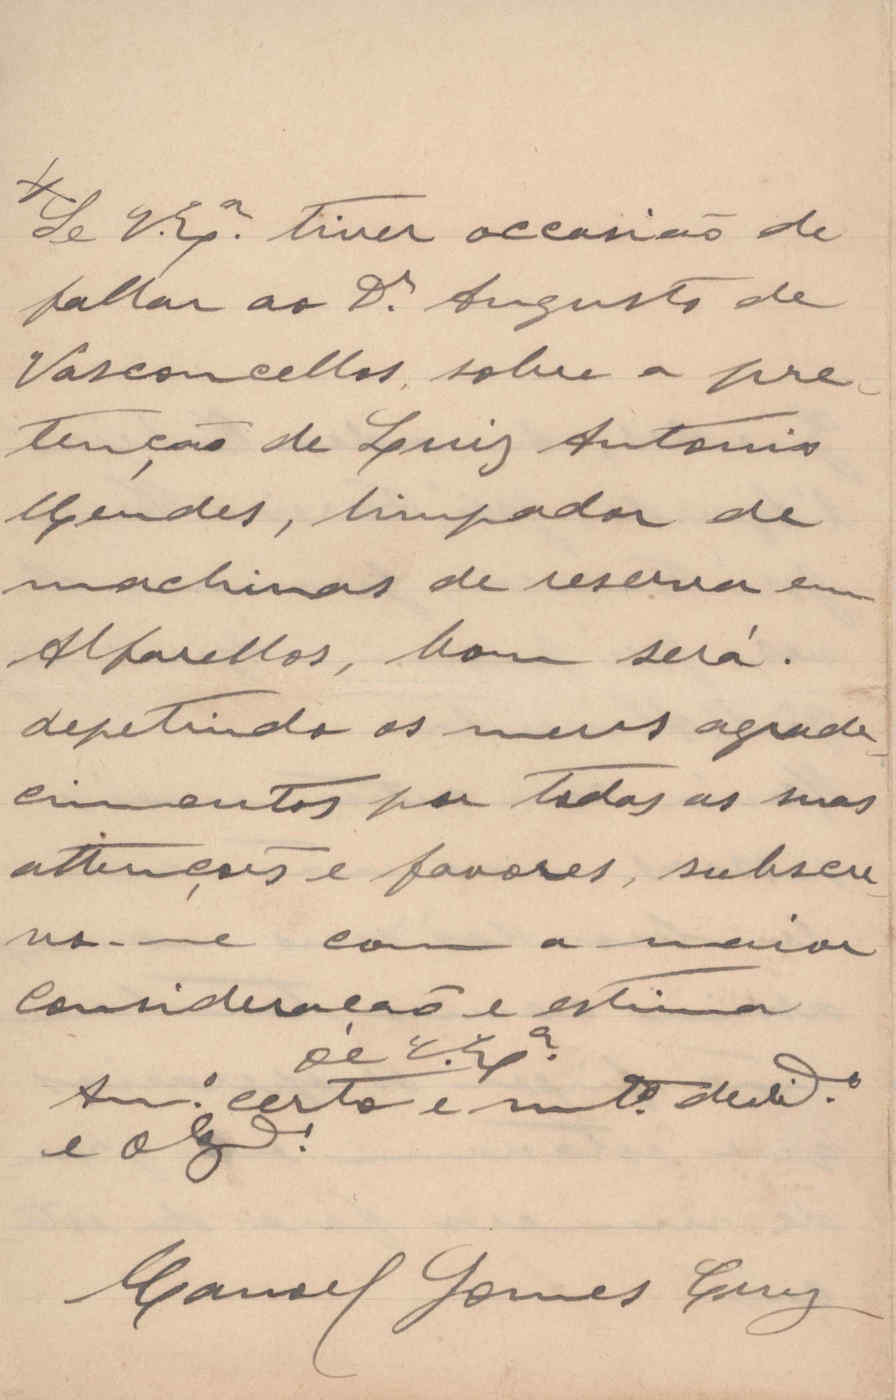 Se V. Ex.ª tiver occasião de
fallar ao Dr. Augusto de
Vasconcellos, sobre a pre-
tenção de Luiz Antonio
Mendes, limpador de
machinas de reserva em
Alfarellos, bom será.
Repetindo os meus agrade-
cimentos por todas as suas
attenções e favores, subscre-
vo-me com a maior
consideração e estima
De V. Ex.ª
Am.º certo e mt.º dedid.º
e Obgd.º
Manoel Gomes Cruz